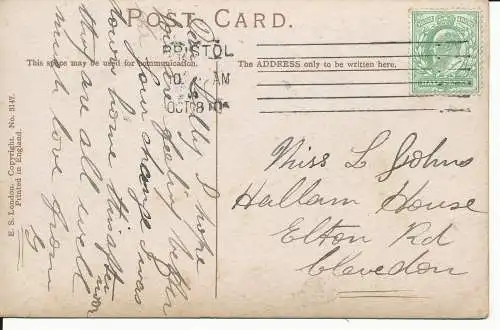 POST CARD.
BRISTOL
AM
OCT 8 10
This space may be used for communication.
The ADDRESS only to be written here.
E. S. London. Copyright. No. 3147.
Printed in England.
Dear Lolly I hope
you are feeling better
for your change I was
down home this after
noon they are all well
much love from
G
Miss L Johns
Hallam House
Elton Rd
Clevedon